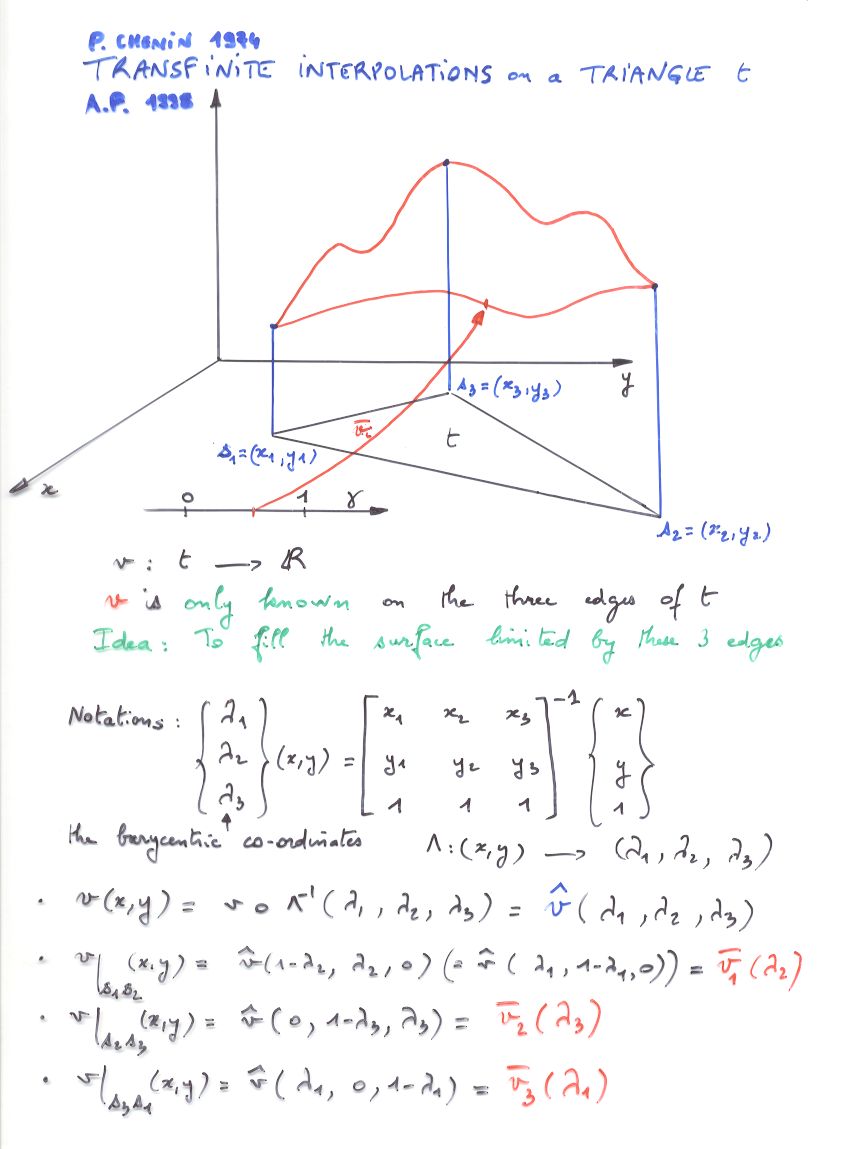 P. CHENIN 1974
TRANSFINITE INTERPOLATIONS on a TRIANGLE t
A.P. 1998
y
s₃=(x₃,y₃)
t
s₁=(x₁,y₁)
x
0 1 γ
s₂=(x₂,y₂)
v : t ⟶ ℝ
v is only known on the three edges of t
Idea: To fill the surface limited by these 3 edges
Notations : {λ₁ λ₂ λ₃}(x,y) = [x₁ x₂ x₃
y₁ y₂ y₃
1 1 1]⁻¹ {x y 1}
the barycentric co-ordinates Λ:(x,y) ⟶ (λ₁, λ₂, λ₃)
• v(x,y) = v o Λ⁻¹(λ₁, λ₂, λ₃) = v̂(λ₁, λ₂, λ₃)
• v|s₁s₂ (x,y) = v̂(1-λ₂, λ₂, 0) (= v̂(λ₁, 1-λ₁, 0)) = v̄₁(λ₂)
• v|s₂s₃ (x,y) = v̂(0, 1-λ₃, λ₃) = v̄₂(λ₃)
• v|s₃s₁ (x,y) = v̂(λ₁, 0, 1-λ₁) = v̄₃(λ₁)